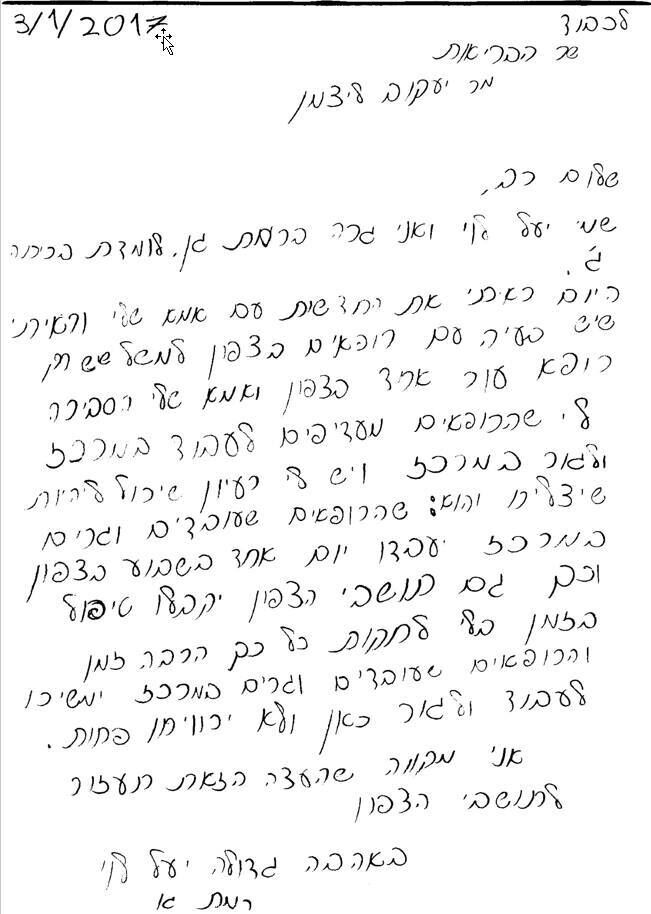 3/1/2017
לכבוד
שר הבריאות
מר יעקוב ליצמן
שלום רב,
שמי יעל לוי ואני גרה ברמת גן. לומדת בכיתה
ג'.
היום ראיתי את החדשות עם אמא שלי וראיתי
שיש בעיה עם רופאים בצפון למשל שש רק
רופא עור אחד בצפון ואמא שלי הסבירה
לי שהרופאים מעדיפים לעבוד במרכז
ולגור במרכז ויש לי רעיון שיכול להיות
שיצליח והוא: שהרופאים שעובדים וגרים
במרכז יעבדו יום אחד בשבוע בצפון
וכך גם תושבי הצפון יקבלו טיפול
בזמן בלי לחקות כל כך הרבה זמן
והרופאים שעובדים וגרים במרכז ימשיכו
לעבוד ולגור כאן ולא ירוויחו פחות.
אני מקווה שהעצה הזאת תעזור
לתושבי הצפון
באהבה גדולה יעל לוי
רמת